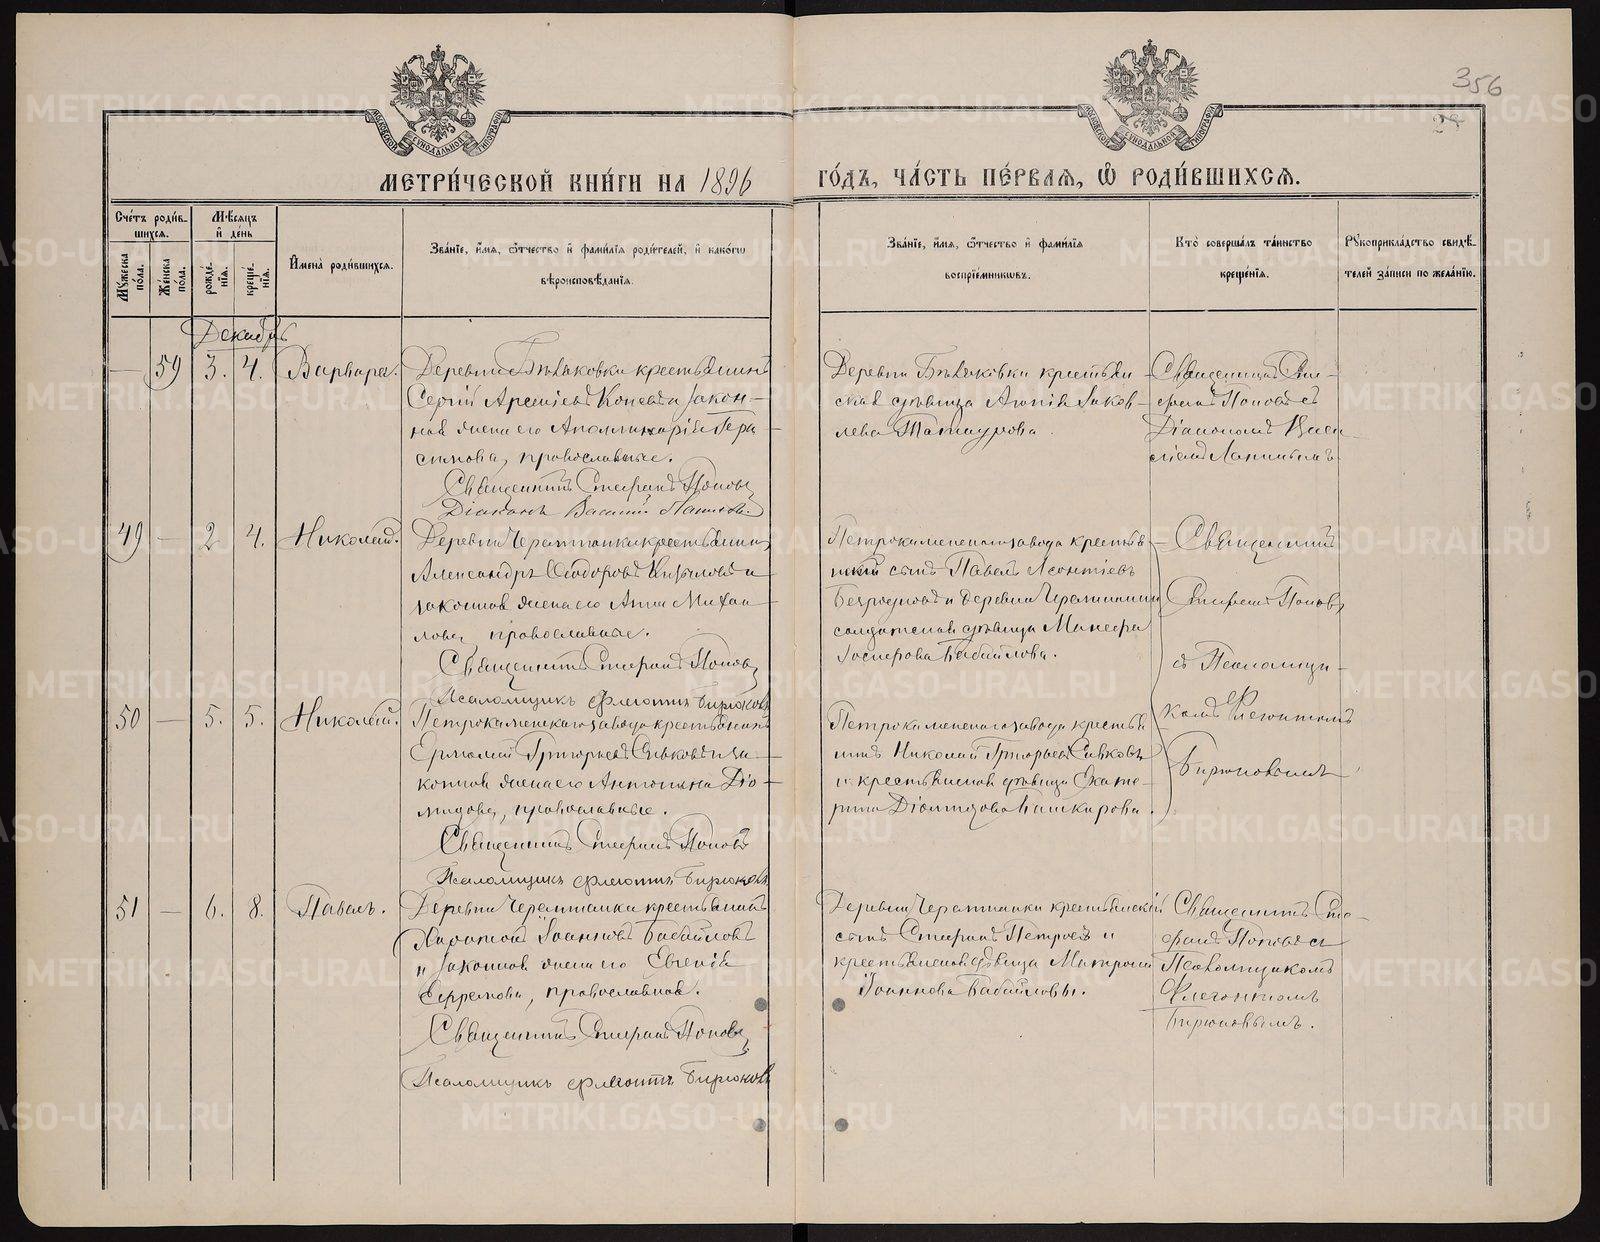 356
МЕТРИ́ЧЕСКОЙ КНИ́ГИ НА 1896 ГО́ДЪ, ЧА́СТЬ ПЕ́РВАЯ, Ѡ҆ РОДИ́ВШИХСЯ.
Сче́тъ роди́в-
шихся.
Мꙋ́жеска по́ла.
Же́нска по́ла.
Мѣ́сяцъ
и҆ де́нь
рожде-
нїя.
креще-
нїя.
И҆мена̀ роди́вшихся.
Зва́нїе, и҆́мя, ѻ҆́тчество и҆ фами́лїя роди́телей, и҆ како́гѡ
вѣроисповѣ́данїя.
Зва́нїе, и҆́мя, ѻ҆́тчество и҆ фами́лїя
воспрїе́мниковъ.
Кто̀ соверша́лъ та́инство
креще́нїя.
Рꙋкоприкла́дство свидѣ́-
телей за́писи по жела́нїю.
Декабрь
— 59 3. 4. Варвара.
крестьянинъ
Сергій Арсеніевъ Коневъ и закон-
ная жена его Аполлинарія Гера
симова, православные.
Священникъ Стефанъ Поповъ
Діаконъ Василій
крестьян-
ская дѣвица Яков-
лева Татаурова.
Священникъ Сте-
фанъ Поповъ съ
Діакономъ Васи-
49 — 2 4. Николай.
Деревни Черемшанки крестьянинъ
Александръ Ѳеодоровъ Кириловъ и
законная жена его Анна Михаи
лова, православные.
Священникъ Стефанъ Поповъ
Псаломщикъ Флегонтъ Бирюковъ
Петрокаменскаго завода крестьян-
скій сынъ Павелъ Леонтіевъ
Безродновъ и деревни Черемшанки
солдатская дѣвица
Бабайлова.
Священникъ
Стефанъ Поповъ
съ Псаломщи-
комъ Флегонтомъ
Бирюковымъ
50 — 5. 5. Николай.
Петрокаменскаго завода крестьянинъ
Ермолай Григорьевъ Сивковъ и за-
конная жена его Антонина Діо-
мидова, православные.
Священникъ Стефанъ Поповъ
Псаломщикъ Флегонтъ Бирюковъ
Петрокаменскаго завода крестья
нинъ Николай Григорьевъ Сивковъ
и крестьянская дѣвица Екате-
рина Діомидова Башкирова.
51 — 6. 8. Павелъ.
Деревни Черемшанки крестьянинъ
Харитонъ Іоанновъ Бабайловъ
и законная жена его Евгенія
Ефремова, православные.
Священникъ Стефанъ Поповъ
Псаломщикъ Флегонтъ Бирюковъ
Деревни Черемшанки крестьянскій
сынъ Стефанъ Петровъ и
крестьянская дѣвица Матрона
Іоаннова Бабайловы.
Священникъ Сте-
фанъ Поповъ съ
Псаломщикомъ
Флегонтомъ
Бирюковымъ.
METRIKI.GASO-URAL.RU